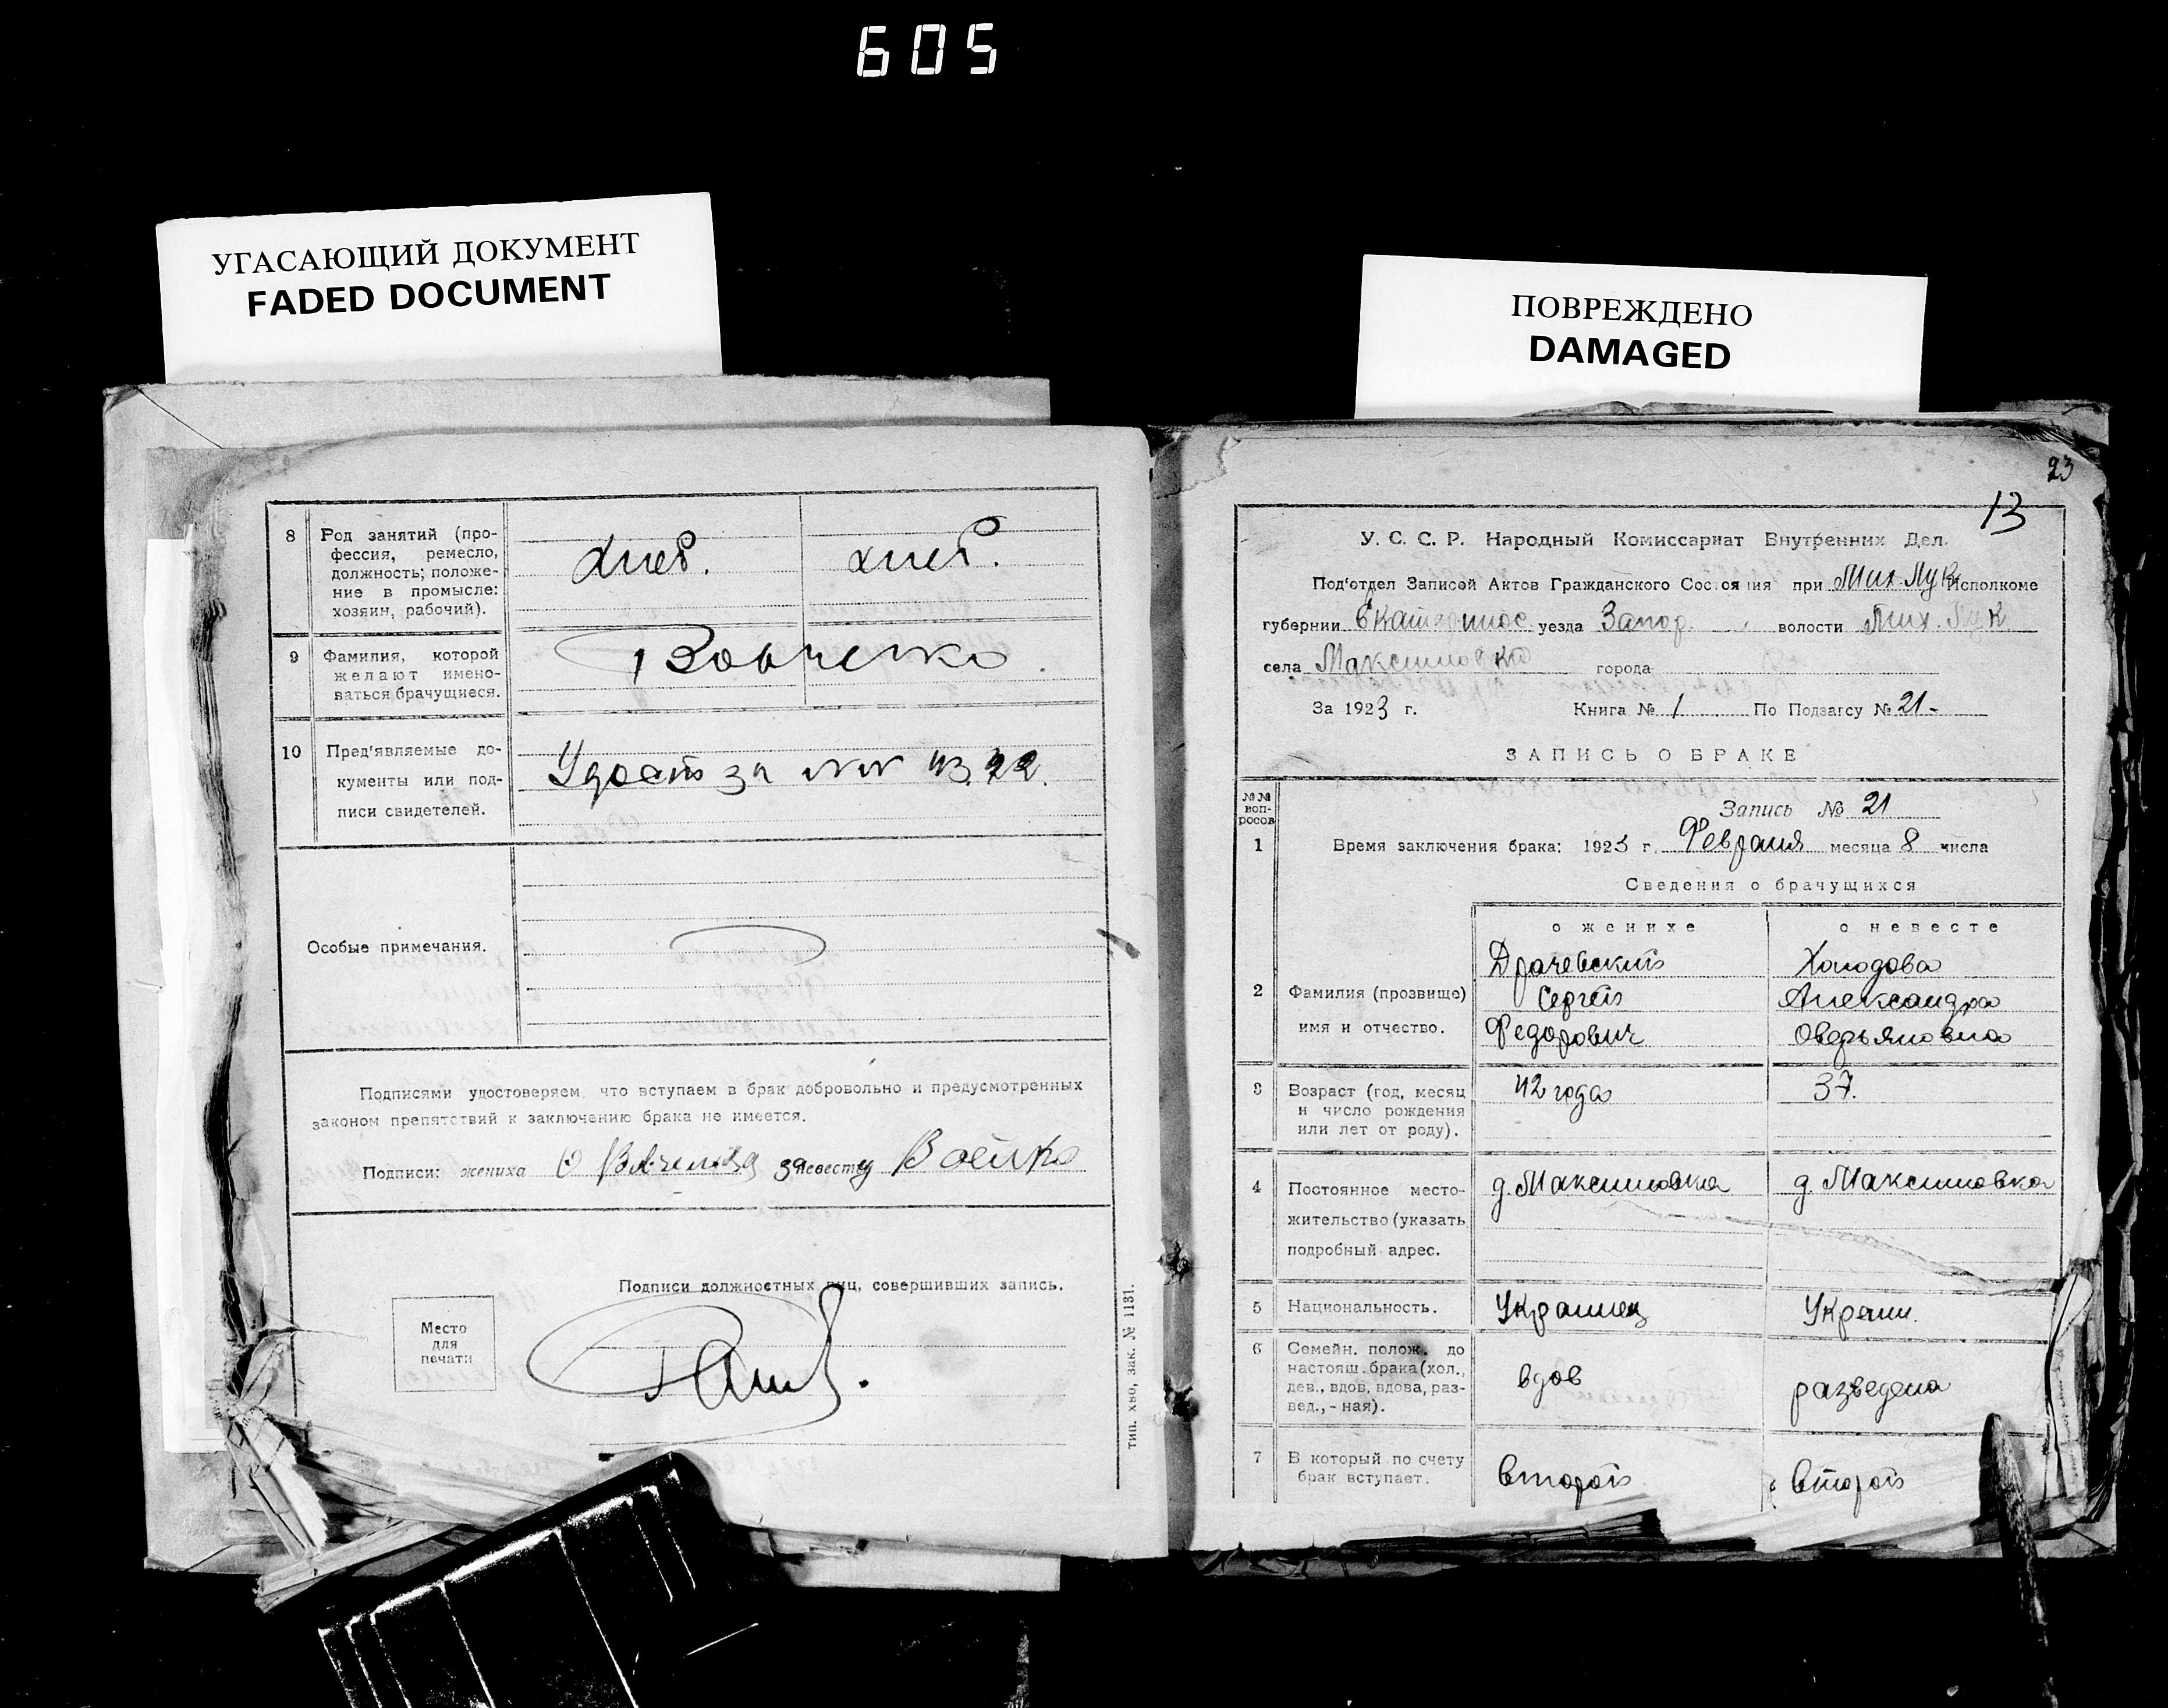 605
УГАСАЮЩИЙ ДОКУМЕНТ
FADED DOCUMENT
ПОВРЕЖДЕНО
DAMAGED
8 Род занятий (про-
фессия, ремесло,
должность; положе-
ние в промысле:
хозяин, рабочий).
хлеб. хлеб.
9 Фамилия, которой
желают имено-
ваться брачущиеся.
Вовченко.
10 Пред'являемые до-
кументы или под-
писи свидетелей.
Удост за №№ 43.22.
Особые примечания.
Подписями удостоверяем, что вступаем в брак добровольно и предусмотренных
законом препятствий к заключению брака не имеется.
Подписи: жениха невесту Бойко
Подписи должностных лиц, совершивших запись.
Место
для
печати
тип. хво, зак. № 1131.
23
13
У. С. С. Р. Народный Комиссариат Внутренних Дел.
Под'отдел Записей Актов Гражданского Состояния при Мих. Лук. Исполкоме
губернии Екатеринос. уезда Запор. волости Мих. Лук
села Максимовка города
За 1923 г. Книга № 1 По Подзагсу № 21-
ЗАПИСЬ О БРАКЕ
№№
воп-
росов
Запись № 21
1 Время заключения брака: 1923 г. Февраля месяца 8 числа
Сведения о брачущихся
о женихе о невесте
2 Фамилия (прозвище)
имя и отчество.
Драчевский Холодова
Сергей Александра
Федорович Оверьяновна
3 Возраст (год, месяц
и число рождения
или лет от роду).
42 года 37.
4 Постоянное место-
жительство (указать
подробный адрес.
д. Максимовка д. Максимовка
5 Национальность. Украинец Украин.
6 Семейн. полож. до
настоящ. брака (хол.,
дев., вдов, вдова, раз-
вед., - ная).
вдов разведена
7 В который по счету
брак вступает.
второй второй